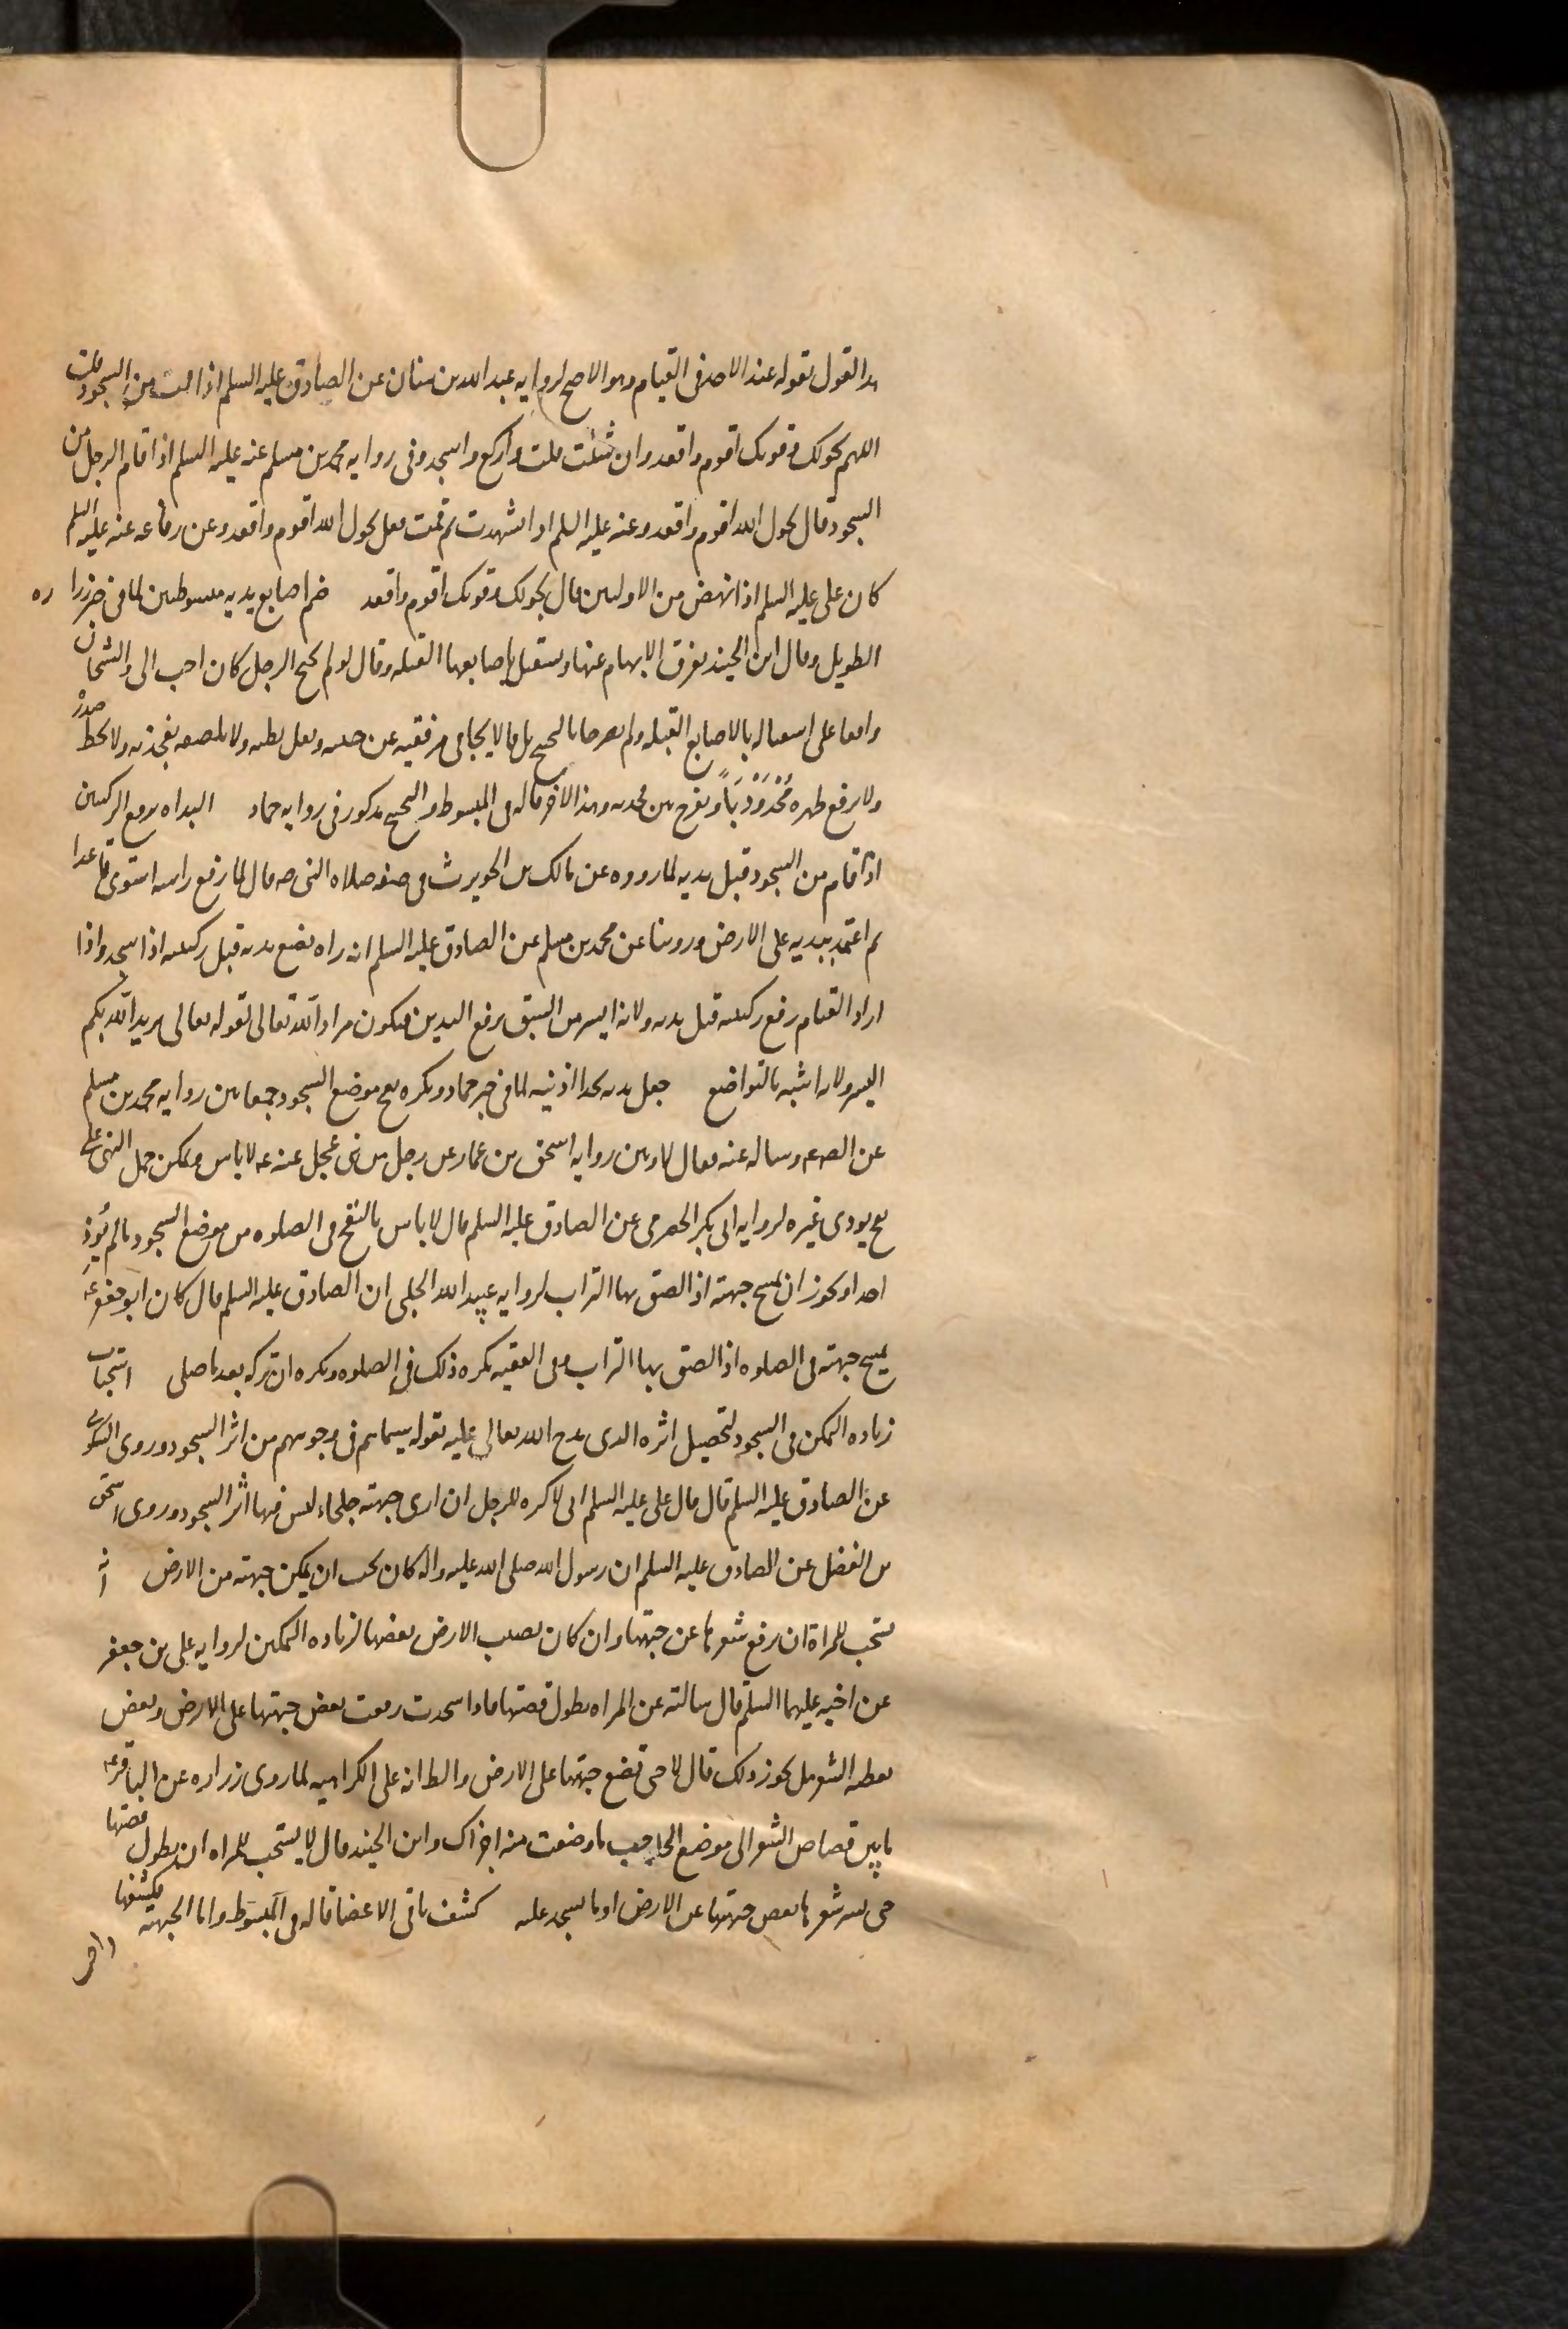 هذا القول بقوله عند الاخذ فى القيام وهو الاصح لروايه عبد الله بن سنان عن الصادق عليه السلم اذا قمت من السجود قلت
اللهم بحولك وقوتك اقوم واقعد وان شئت قلت واركع واسجد وفى روايه محمد بن مسلم عنه عليه السلم اذا قام الرجل من
السجود قال بحول الله اقوم واقعد وعنه عليه السلم اذا تشهدت ثم قمت فقل بحول الله اقوم واقعد وعن رفاعه عنه عليه السلم
كان على عليه السلم اذا نهض من الاولتين قال بحولك وقوتك اقوم واقعد ضم اصابع يديه مبسوطتين لما فى خبر زراره
الطويل وقال ابن الجنيد يفرق الابهام عنها ويستقبل باصابعها القبله وقال لو لم يجنح الرجل كان احب الى والشيخان
وافقا على استقباله بالاصابع القبله ولم يصرحا بالتجنيح بل قالا يجافى مرفقيه عن جنبيه ويقل بطنه ولا يلصقه بفخذيه ولا يحط صدره
ولا يرفع ظهره مُحْدَوْدَباً ويفرج بين فخذيه وهذا الاخر قاله فى المبسوط والتجنيح مذكور فى روايه حماد البداه برفع الركبتين
اذا قام من السجود قبل يديه لما رووه عن مالك بن الحويرث فى صفه صلاه النبى ص قال لما رفع راسه استوى قاعدا
ثم اعتمد بيديه على الارض وروينا عن محمد بن مسلم عن الصادق عليه السلم انه راه يضع يديه قبل ركبتيه اذا سجد واذا
اراد القيام رفع ركبتيه قبل يديه ولانه ايسر من السبق برفع اليدين فيكون مراد الله تعالى لقوله تعالى يريد الله بكم
اليسر ولانه اشبه بالتواضع جعل يديه بحذا اذنيه لما فى خبر حماد ويكره نفخ موضع السجود جمعا بين روايه محمد بن مسلم
عن الص ع وساله عنه فقال لا وبين روايه اسحق بن عمار عن رجل من بنى عجل عنه ع لا باس ويمكن حمل النهى على
نفخ يوذى غيره لروايه ابى بكر الحضرمى عن الصادق عليه السلم قال لا باس بالنفخ فى الصلوه من موضع السجود ما لم يُوذِ
احدا ويجوز ان يمسح جبهته اذا لصق بها التراب لروايه عبيد الله الحلبى ان الصادق عليه السلم قال كان ابو جعفر ع
يمسح جبهته فى الصلوه اذا لصق بها التراب وفى الفقيه يكره ذلك فى الصلوه ويكره ان يتركه بعد ما صلى استحباب
زياده التمكن فى السجود لتحصيل اثره الذى مدح الله تعالى عليه بقوله سيماهم فى وجوههم من اثر السجود وروى السكونى
عن الصادق عليه السلم قال قال على عليه السلم انى لاكره للرجل ان ارى جبهته جلحاء ليس فيها اثر السجود وروى اسحق
بن الفضل عن الصادق عليه السلم ان رسول الله صلى الله عليه واله كان يحب ان يمكن جبهته من الارض انه
يستحب للمراة ان ترفع شعرها عن جبهتها وان كان يصيب الارض بعضها لزياده التمكين لروايه على بن جعفر
عن اخيه عليهما السلم قال سالته عن المراه يطول قصتها فاذا سجدت وقعت بعض جبهتها على الارض وبعض
يغطيه الشعر هل يجوز ذلك قال لا حتى تضع جبهتها على الارض والظاهر انه على الكراهيه لما روى زراره عن الباقر ع
ما بين قصاص الشعر الى موضع الحاجب ما وضعت منه اجزاك وابن الجنيد قال لا يستحب للمراه ان يطول قصتها
حتى يستر شعرها بعض جبهتها عن الارض او ما يسجد عليه كشف باقى الاعضا قاله فى المبسوط واما الجبهه فيكشفها